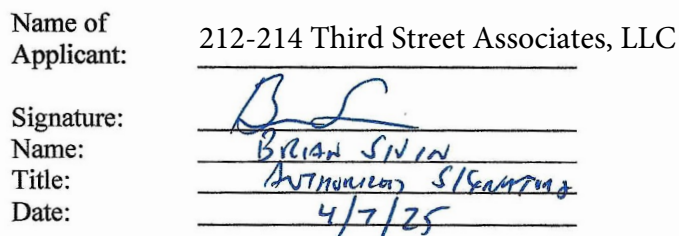 Name of
Applicant: 212-214 Third Street Associates, LLC
Signature:
Name: BRIAN SIVIN
Title: AUTHORIZED SIGNATORY
Date: 4/7/25